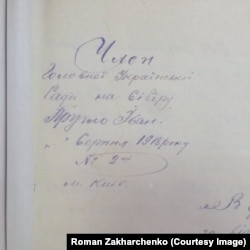 Член
Головної Української
Ради на Сибіру
Іван
" " Серпня 1918 року
№ 2
м. Київ
Roman Zakharchenko (Courtesy Image)